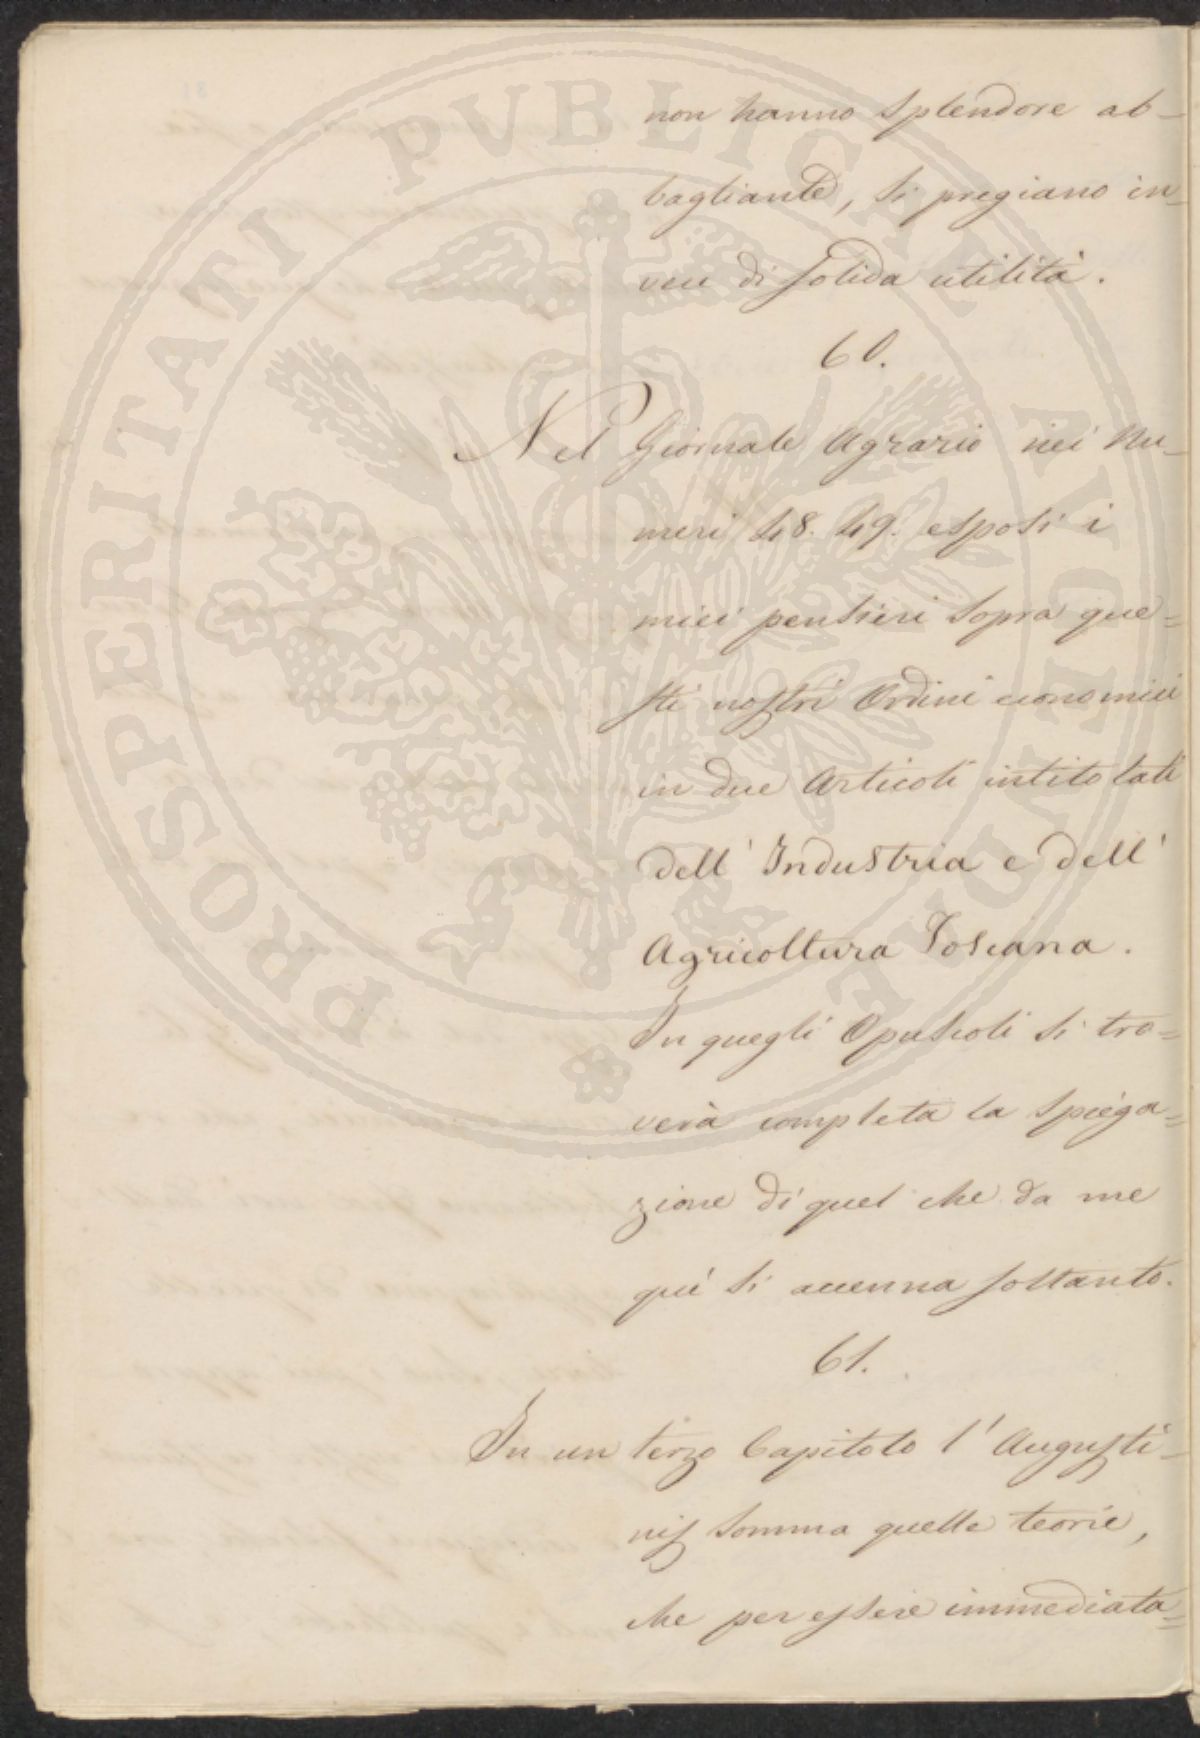 non hanno splendore ab-
bagliante, si pregiano in-
vece di solida utilità.
60.
Nel Giornale Agrario nei Nu-
meri 48. 49. esposi i
miei pensieri sopra que=
sti nostri Ordini economici
in due Articoli intitolati
dell' Industria e dell'
Agricoltura Toscana.
In quegli Opuscoli si tro=
verà completa la spiega=
zione di quel che da me
quì si accenna soltanto.
61.
In un terzo Capitolo l' Augusti-
nis somma quelle teorie,
che per essere immediata=
PROSPERITATI PVBLICAE AVGENDAE